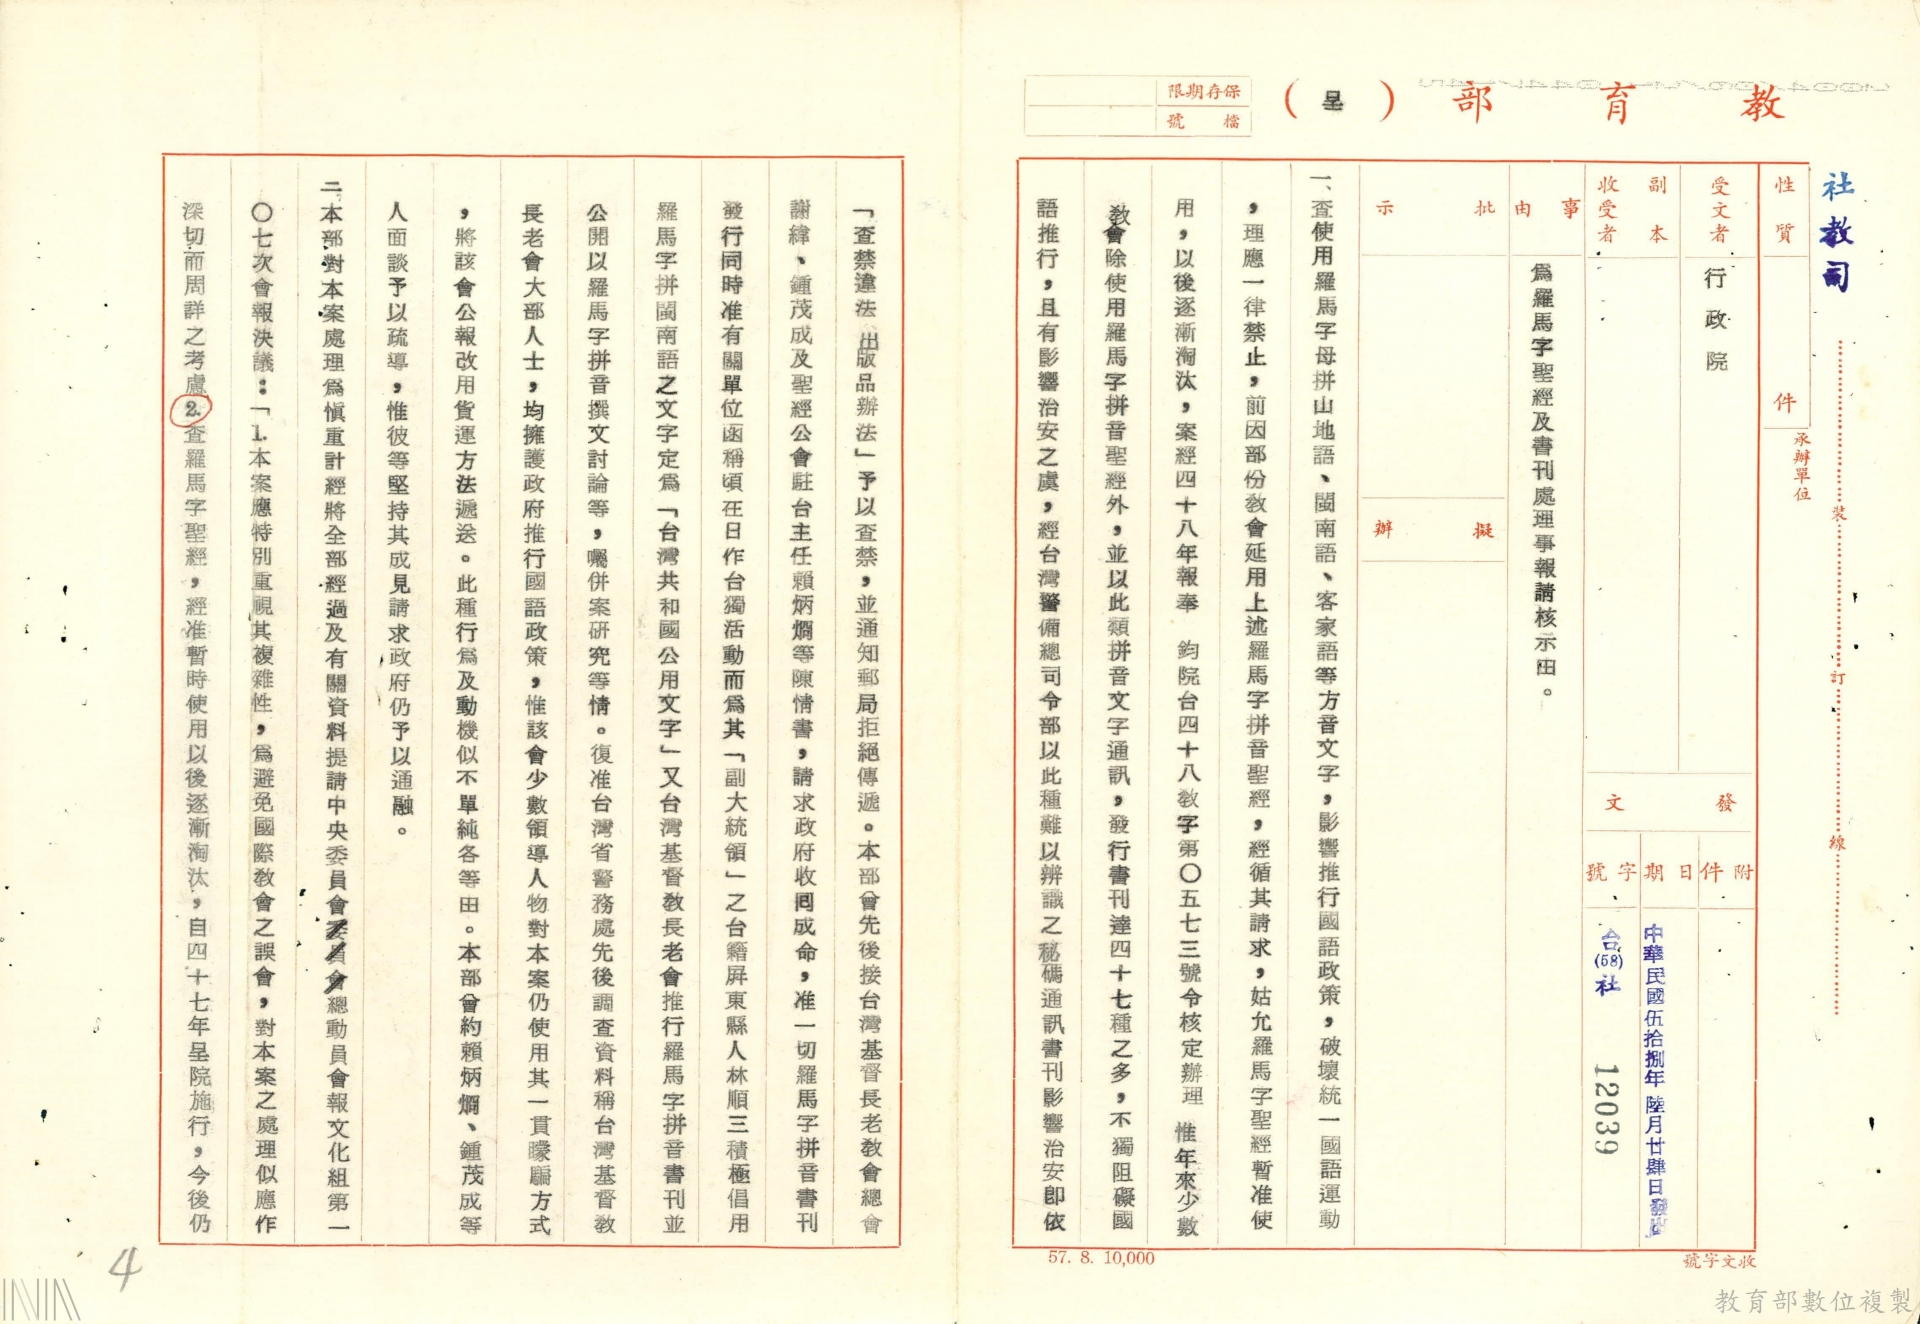 教育部（呈）
保存期限
檔號
社教司
性質
件
承辦單位
裝
訂
線
受文者
行政院
副本
收受者
發文
附件
日期
字號
中華民國伍拾捌年陸月廿肆日發出
台(58)社
12039
事由
為羅馬字聖經及書刊處理事報請核示由。
批示
擬辦
一、查使用羅馬字母拼山地語、閩南語、客家語等方音文字，影響推行國語政策，破壞統一國語運動
，理應一律禁止，前因部份教會延用上述羅馬字拼音聖經，經循其請求，姑允羅馬字聖經暫准使
用，以後逐漸淘汰，案經四十八年報奉 鈞院台四十八教字第〇五七三號令核定辦理 惟年來少數
教會除使用羅馬字拼音聖經外，並以此類拼音文字通訊，發行書刊達四十七種之多，不獨阻礙國
語推行，且有影響治安之虞，經台灣警備總司令部以此種難以辨識之秘碼通訊書刊影響治安即依
「查禁違法出版品辦法」予以查禁，並通知郵局拒絕傳遞。本部曾先後接台灣基督長老教會總會
謝緯、鍾茂成及聖經公會駐台主任賴炳烱等陳情書，請求政府收回成命，准一切羅馬字拼音書刊
發行同時准有關單位函稱頃在日作台獨活動而為其「副大統領」之台籍屏東縣人林順三積極倡用
羅馬字拼閩南語之文字定為「台灣共和國公用文字」又台灣基督教長老會推行羅馬字拼音書刊並
公開以羅馬字拼音撰文討論等，囑併案研究等情。復准台灣省警務處先後調查資料稱台灣基督教
長老會大部人士，均擁護政府推行國語政策，惟該會少數領導人物對本案仍使用其一貫矇騙方式
，將該會公報改用貨運方法遞送。此種行為及動機似不單純各等由。本部曾約賴炳烱、鍾茂成等
人面談予以疏導，惟彼等堅持其成見請求政府仍予以通融。
二、本部對本案處理為慎重計經將全部經過及有關資料提請中央委員會委員會總動員會報文化組第一
〇七次會報決議：「1.本案應特別重視其複雜性，為避免國際教會之誤會，對本案之處理似應作
深切而周詳之考慮2.查羅馬字聖經，經准暫時使用以後逐漸淘汰，自四十七年呈院施行，今後仍
57. 8. 10,000
收文字號
4
教育部數位複製